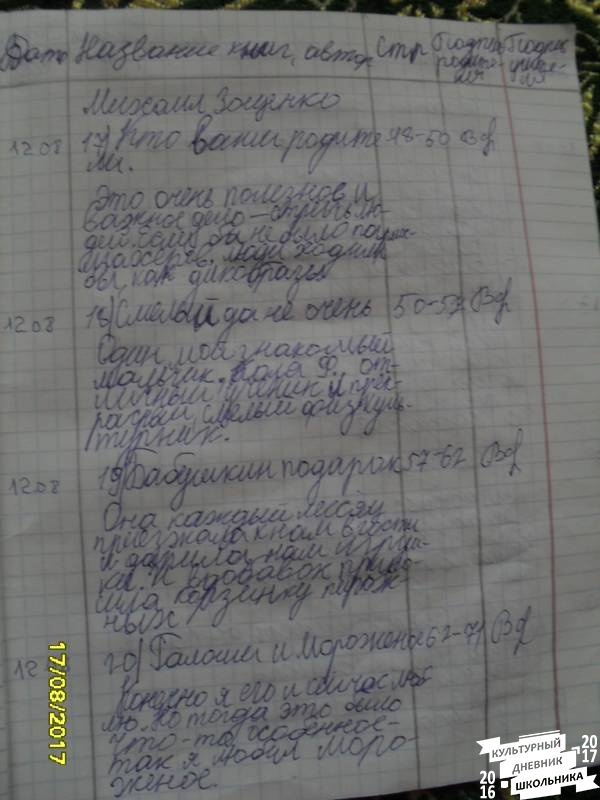 Дата Название книг, автор Стр Подпис родите- ля Подпис учите- ля
Михаил Зощенко
12.08 17) Кто ваши родите 48-50
ли.
Это очень полезное и
важное дело — стричь лю-
дей. Если бы не было парик-
махеров, люди ходили
бы, как дикобразы
12.08 18) Смелый да не очень 50-57
Один мой знакомый
мальчик, Коля Ф., от-
личный ученик и прек-
расный, смелый физкуль-
турник.
12.08 19) Бабушкин подарок 57-62
Она каждый месяц
приезжала к нам в гости
и дарила нам игруш-
ки. И вдобавок приво-
зила корзинку пирож-
ных
12 20) Галоши и Мороженое 62-71
Конечно я его и сейчас люб
лю. Но тогда это было
что-то особенное-
так я любил моро-
женое.
17/08/2017
КУЛЬТУРНЫЙ
ДНЕВНИК
ШКОЛЬНИКА
2016
2017